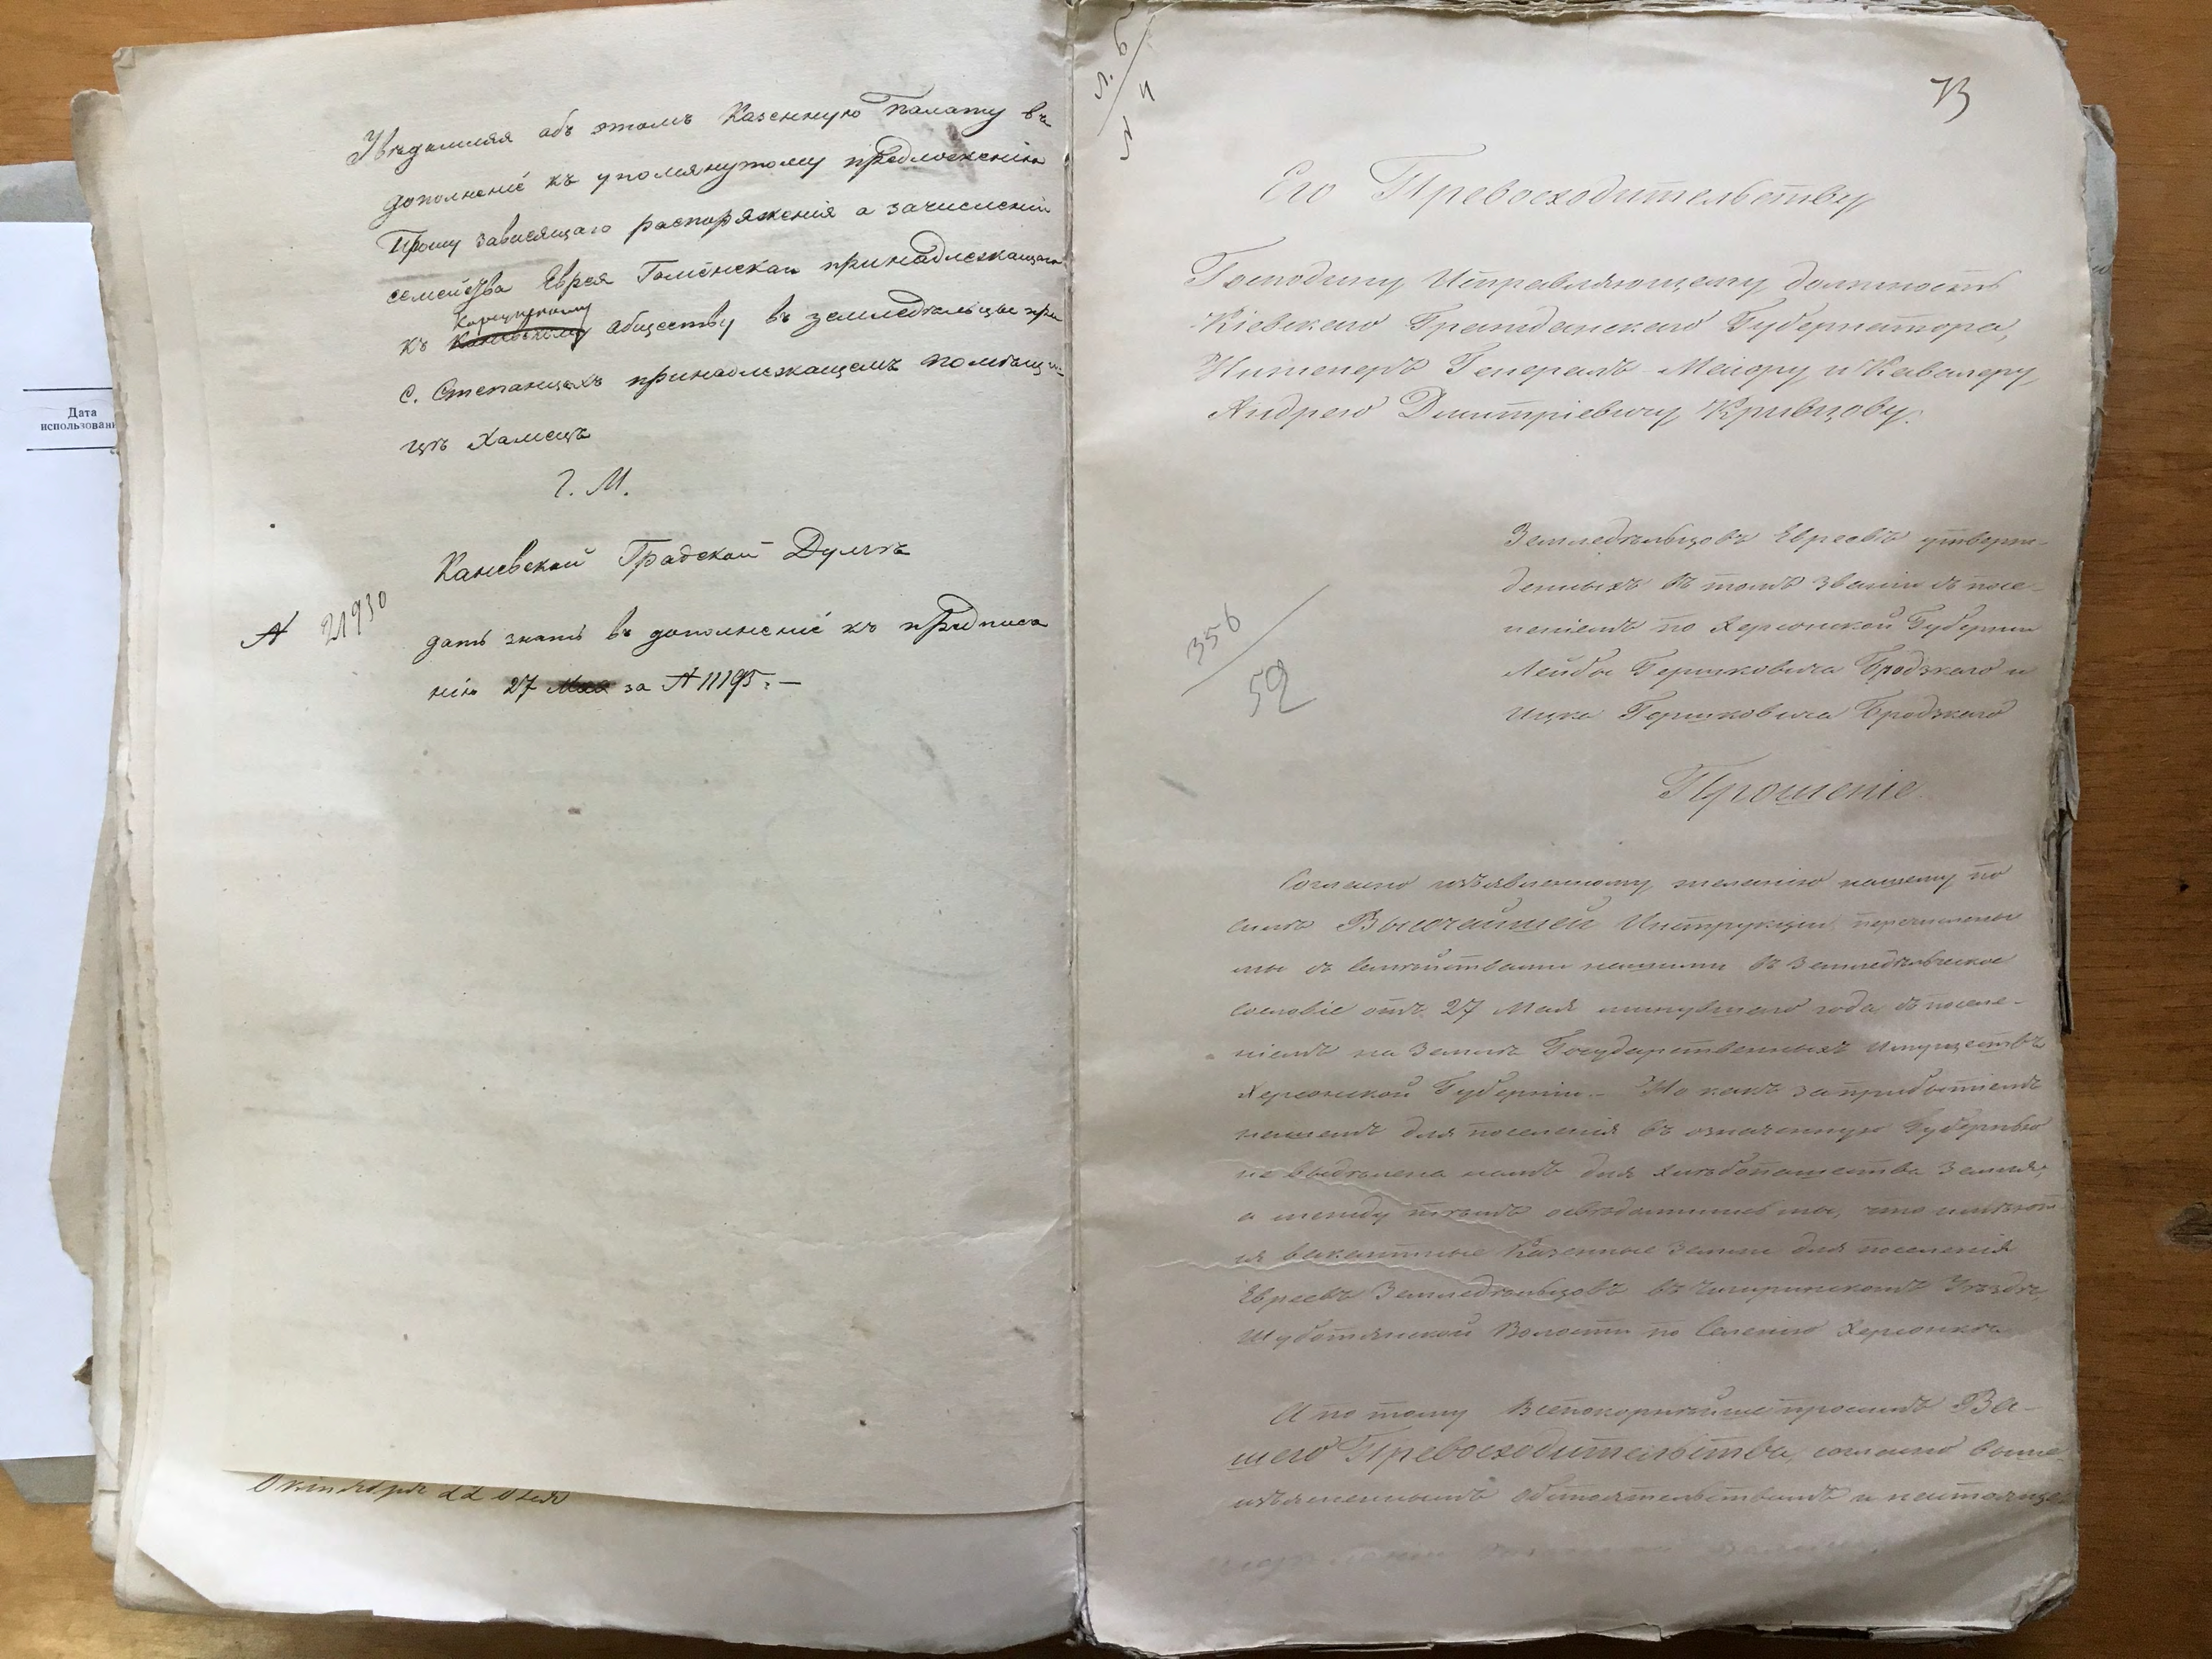 Увѣдомляя объ этомъ Казенную Палату въ
дополненіе къ упомянутому предложенію
Прошу зависящаго распоряженія о зачисленіи
семейства Еврея принадлежащаго
къ обществу въ земледѣльцы при
с. Степанцахъ принадлежащемъ помѣщи-
цѣ
Г. М.
Каневской Градской Думѣ
№ 21930
дать знать въ дополненіе къ предписа
нію 27 Мая за № 11195.—
Октября 22 дня
Дата
использован
73
л. 6
и
5
Его Превосходительству
Господину Исправляющему должность
Кіевскаго Гражданскаго Губернатора,
Инженеръ Генералъ Маіору и Кавалеру
Андрею Дмитріевичу Кривцову.
Земледѣльцовъ Евреевъ утверж-
денныхъ въ томъ званіи съ посе-
леніемъ по Херсонской Губерніи
Лейбы Гершковича Бродзкаго и
Ицка Гершковича Бродзкаго
356
52
Прошеніе
Согласно изъявленному желанію нашему по
силѣ Высочайшей Инструкціи перечислены
мы съ Семѣйствами нашими въ Земледѣльческое
Сословіе отъ 27 Мая минувшего года съ поселе-
ніемъ на Земляхъ Государственныхъ Имуществъ
Херсонской Губерніи.— Но какъ за прибытіемъ
нашемъ для поселенія въ означенную Губернію
не выдѣлена намъ для хлѣбопашества Земля,
а между тѣмъ освѣдомились мы, что имѣют
ся вакантные Казенные Земли для поселенія
Евреевъ Земледѣльцовъ въ Чигиринскомъ Уѣздѣ,
Шуботянской Волости по Селенію Херсонкѣ
А по тому Всепокорнѣйше просимъ Ва-
шего Превосходительства, согласно выше
изъясненнымъ Обстоятельствамъ и